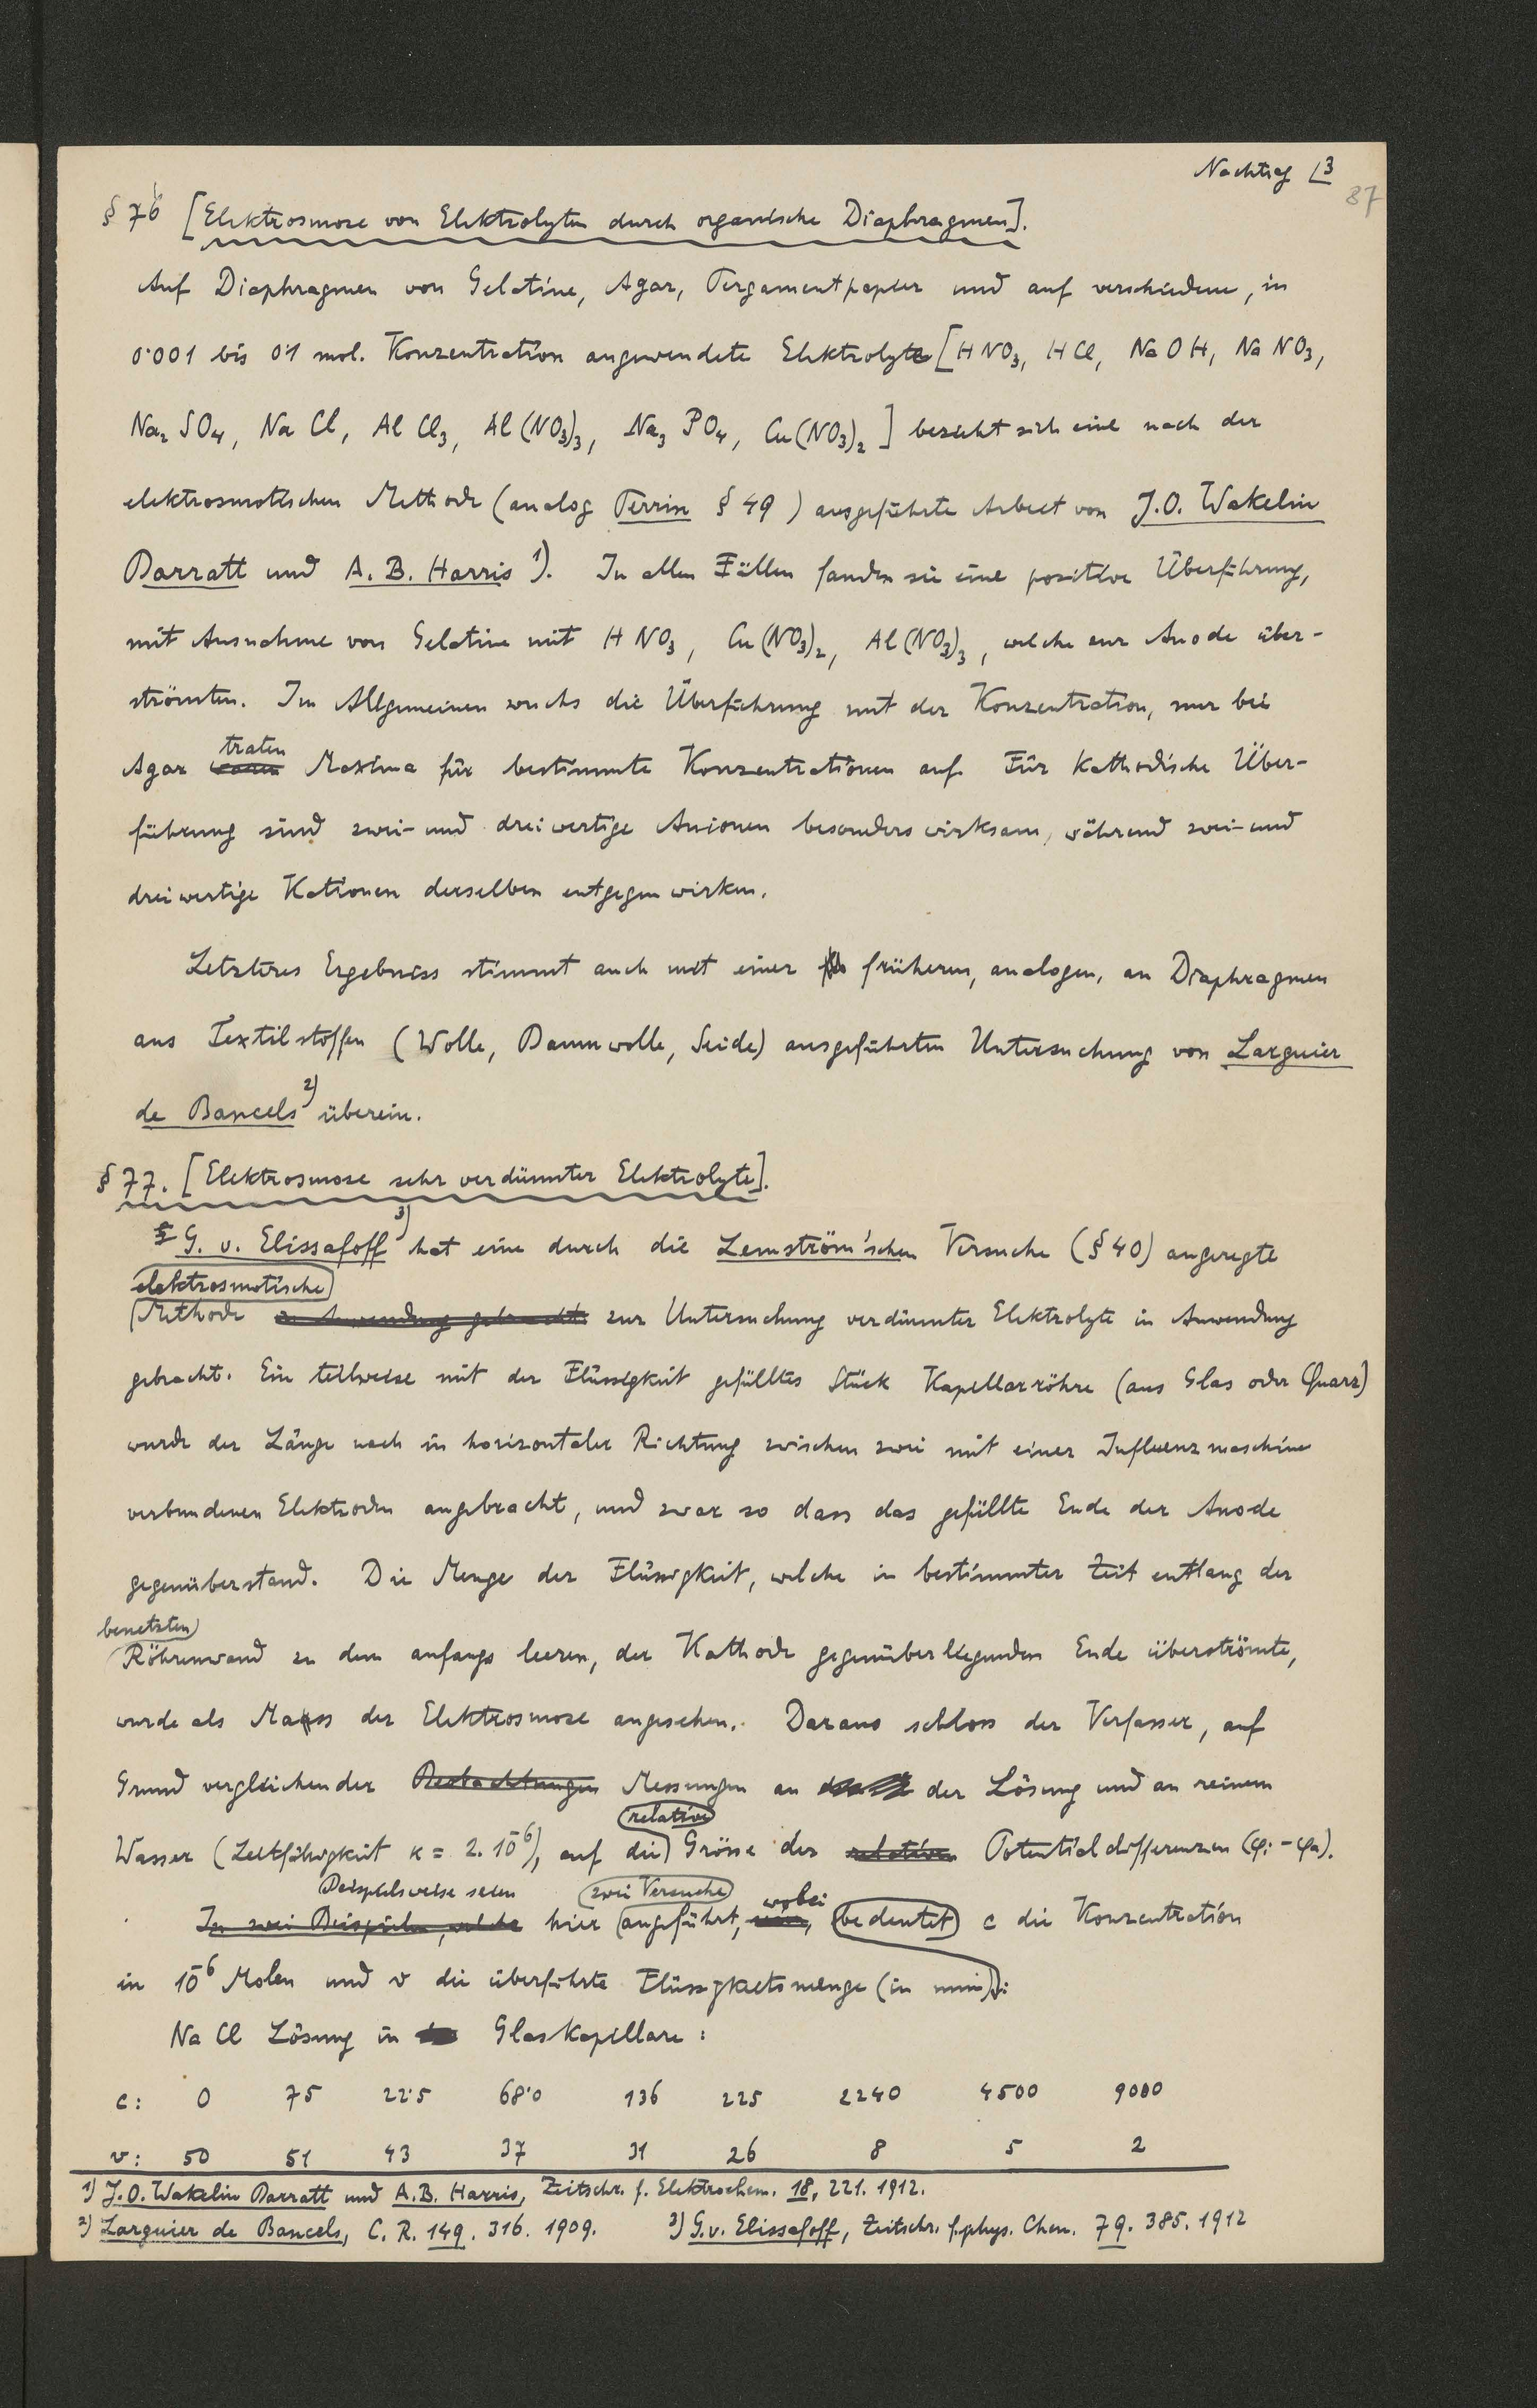 Nachtrag 13
87
§ 76 [Elektrosmose von Elektrolyten durch organische Diaphragmen].
Auf Diaphragmen von Gelatine, Agar, Pergamentpapier und auf verschiedene, in
0·001 bis 0·1 mol. Konzentration angewendete Elektrolyte [HNO₃, HCl, NaOH, NaNO₃,
Na₂SO₄, NaCl, AlCl₃, Al(NO₃)₃, Na₃PO₄, Cu(NO₃)₂] bezieht sich eine nach der
elektrosmotischen Methode (analog Perrin § 49) ausgeführte Arbeit von J.O. Wakelin
Barratt und A. B. Harris ¹). In allen Fällen fanden sie eine positive Überführung,
mit Ausnahme von Gelatine mit HNO₃, Cu(NO₃)₂, Al(NO₃)₃, welche zur Anode über-
strömten. Im Allgemeinen wuchs die Überführung mit der Konzentration, nur bei
traten
Agar waren Maxima für bestimmte Konzentrationen auf. Für kathodische Über-
führung sind zwei- und dreiwertige Anionen besonders wirksam, während zwei- und
dreiwertige Kationen derselben entgegen wirken.
Letzteres Ergebniss stimmt auch mit einer früheren, analogen, an Diaphragmen
aus Textilstoffen (Wolle, Baumwolle, Seide) ausgeführten Untersuchung von Larguier
de Bancels ²) überein.
§ 77. [Elektrosmose sehr verdünnter Elektrolyte].
G. v. Elissafoff ³) hat eine durch die Lemström'schen Versuche (§ 40) angeregte
elektrosmotische
Methode in Anwendung gebracht zur Untersuchung verdünnter Elektrolyte in Anwendung
gebracht. Ein teilweise mit der Flüssigkeit gefülltes Stück Kapillarröhre (aus Glas oder Quarz)
wurde der Länge nach in horizontaler Richtung zwischen zwei mit einer Influenzmaschine
verbundenen Elektroden angebracht, und zwar so dass das gefüllte Ende der Anode
gegenüberstand. Die Menge der Flüssigkeit, welche in bestimmter Zeit entlang der
benetzten
Röhrenwand zu dem anfangs leeren, der Kathode gegenüberliegenden Ende überströmte,
wurde als Mass der Elektrosmose angesehen. Daraus schloss der Verfasser, auf
Grund vergleichender Beobachtungen Messungen an der Lösung und an reinem
relative
Wasser (Leitfähigkeit κ = 2. 10⁻⁶), auf die Grösse der relativen Potentialdifferenzen (φi - φa).
Beispielsweise seien zwei Versuche wobei
In zwei Beispielen, welche hier angeführt, bedeutet c die Konzentration
in 10⁻⁶ Molen und v die überführte Flüssigkeitsmenge (in mm³):
NaCl Lösung in Glaskapillare:
c: 0 75 22·5 68·0 136 225 2240 4500 9000
v: 50 51 43 37 31 26 8 5 2
¹) J.O. Wakelin Barratt und A.B. Harris, Zeitschr. f. Elektrochem. 18, 221. 1912.
²) Larguier de Bancels, C. R. 149. 316. 1909. ³) G.v. Elissafoff, Zeitschr. f. phys. Chem. 79. 385. 1912